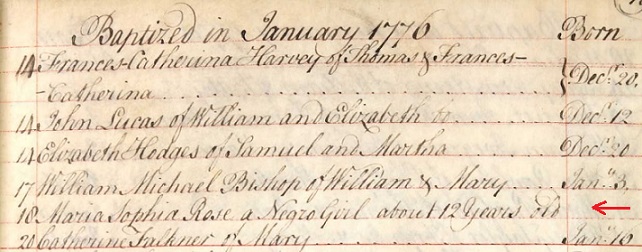 Baptized in January 1776 Born
14 Frances-Catherina Harvey of Thomas & Frances-
-Catherina Decr. 20,
14 John Lucas of William and Elizabeth Decr. 12
14 Elizabeth Hodges of Samuel and Martha Decr. 20
17 William Michael Bishop of William & Mary Jany. 3
18 Maria Sophia Rose a Negro Girl about 12 Years old
20 Catherine Falkner of Mary Jany. 16